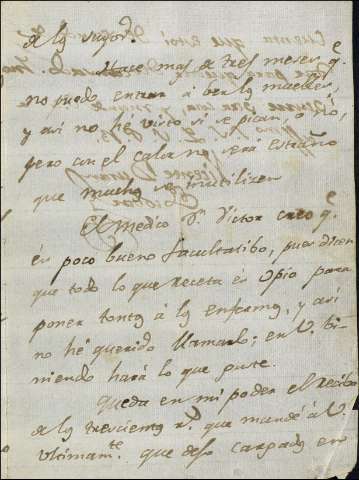 de los suyos.
Hace mas de tres meses q.e
no puedo entrar à ber los muebles,
y asi no hé visto si se pican, o nó,
pero con el calor no será estraño
que muchos se inutilizen
El Medico D.n Victor creo q.e
és poco bueno facultatibo, pues dicen
que todo lo que receta és opio para
poner tontos à los enfermos, y asi
no hé querido llamarlo: en V. bi-
niendo hará lo que guste.
Queda en mi poder el recibo
de los trescientos r.s que mandé à V.
ultimam.te que dejo cargados en